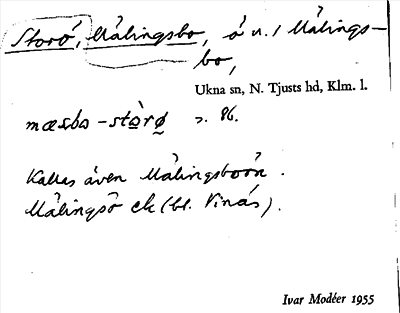 Storö, Målingsbo, ö n. i Målings-
bo,
Ukna sn, N. Tjusts hd, Klm. l.
mæsbo-stòrø s. 86.
Kallas även Målingsboön.
Målingsö ek (bl. Vinäs).
Ivar Modéer 1955